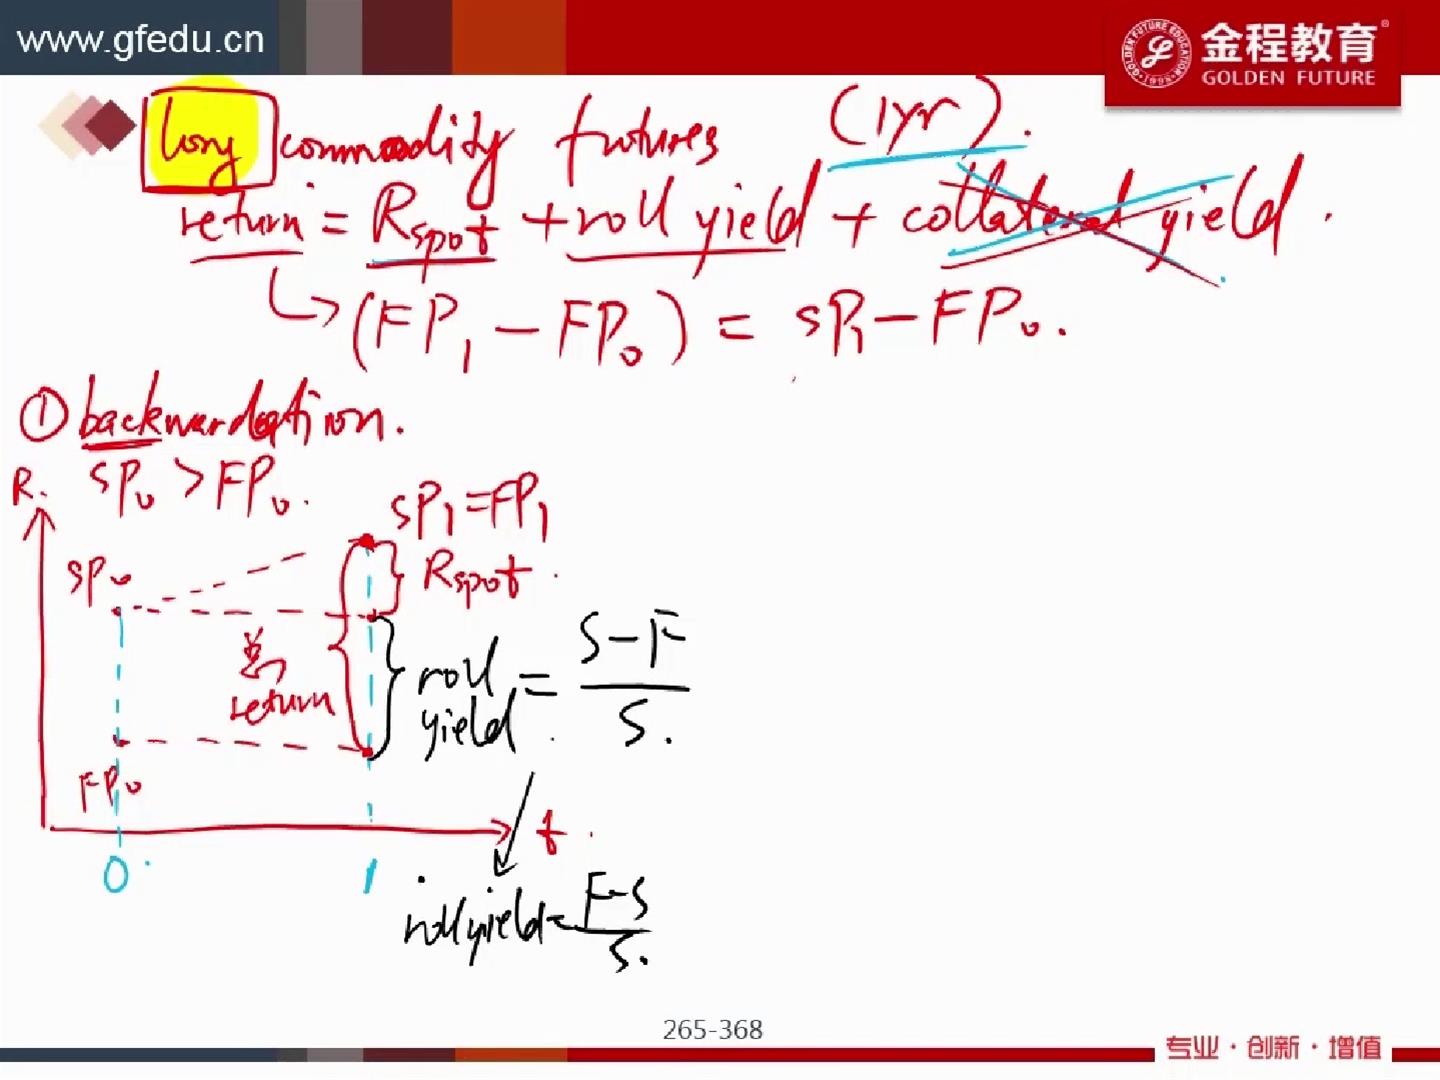 www.gfedu.cn
金程教育®
GOLDEN FUTURE
long commodity futures (1yr).
return = Rspot + roll yield + collateral yield.
(FP₁ - FP₀) = SP₁ - FP₀.
① backwardation.
SP₀ > FP₀.
R.
SP₁ = FP₁
SP₀
Rspot.
总 return
roll yield = S-F / S.
FP₀
t.
0
1
roll yield = F-S / S.
265-368
专业·创新·增值